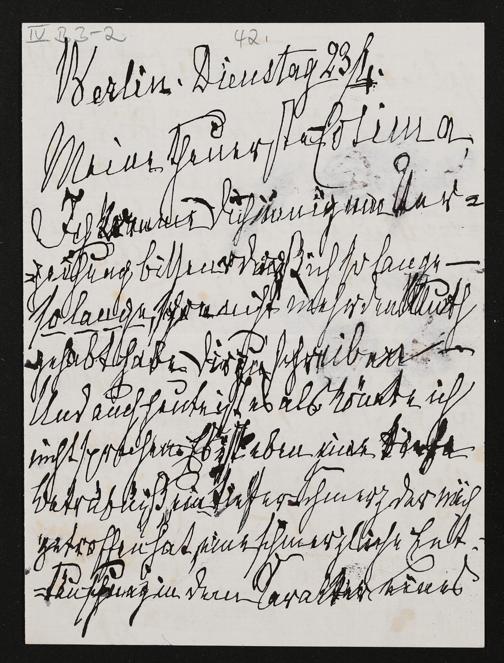 IV B 3-2
42.
Berlin. Dienstag 23/4.
Meine theuerste Cosima
Ich Dich innig um Ver=
=zeihung bitten daß ich so lange —
so lange, schon nicht mehr den Muth
gehabt habe Dir zu schreiben —
Und auch heute ist es als könnte ich
nicht sprechen. Es ist eben eine tiefe
Betrübniß ein tiefer Schmerz der mich
getroffen hat, eine schmerzliche Ent-
=täuschung in dem Caracter eines